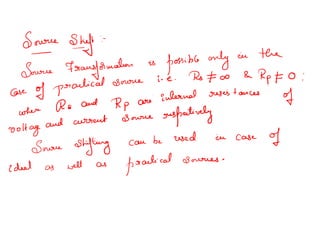 Source Shift :-
Source Transformation is possible only in the
case of practical source i.e. Rs ≠ ∞ & Rp ≠ 0 ;
when Rs and Rp are internal resistances of
voltage and current source respectively
Source Shifting can be used in case of
ideal as well as practical sources.